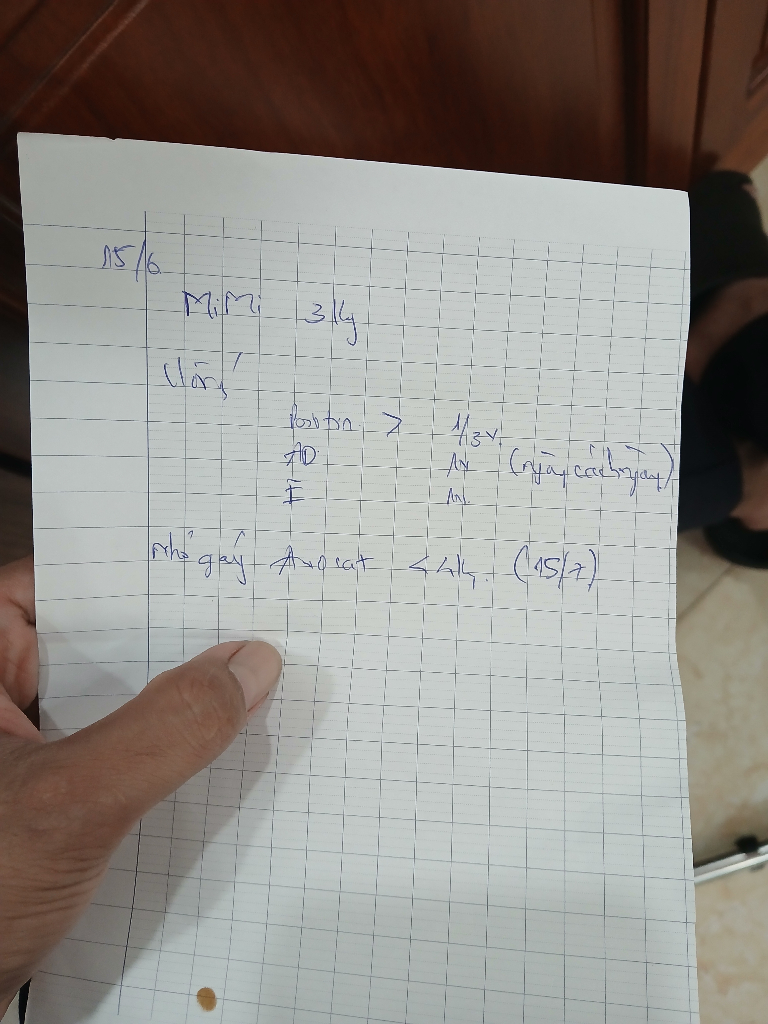 15/6
MiMi 3kg
Uống
> 1/3v
AD 1v (ngày cách ngày)
E 1v
nhỏ gáy Avocat <4kg (15/7)